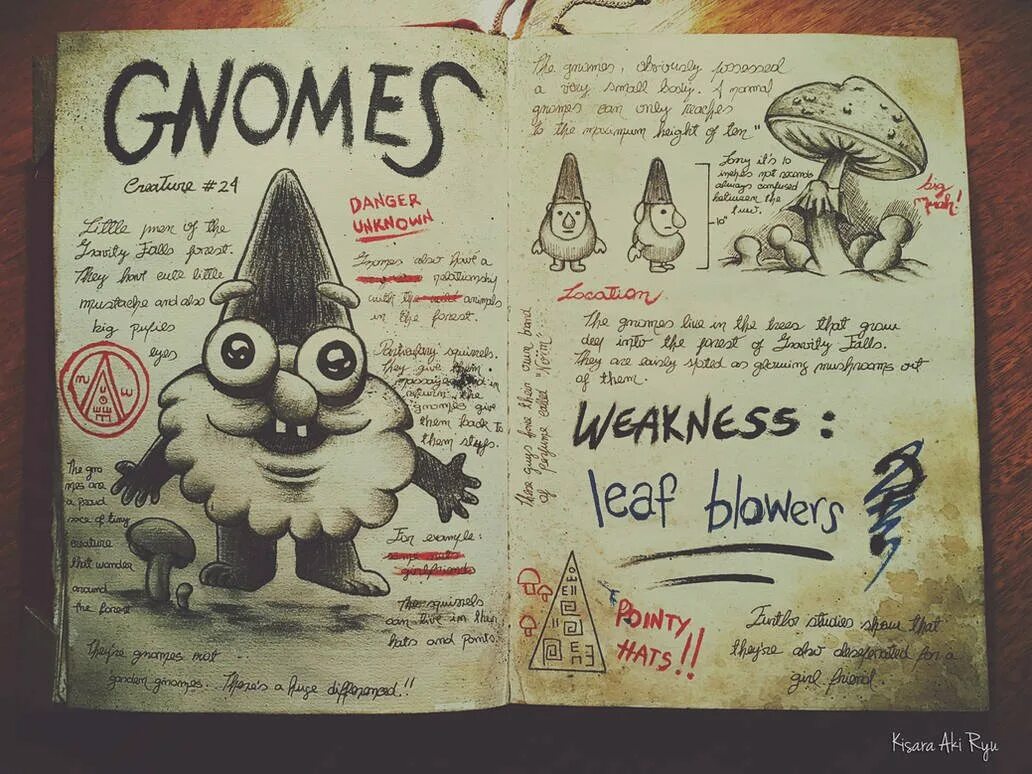 GNOMES
Creature #24
Little men of the
Gravity Falls forest.
They have cute little
mustache and also
big pupies
eyes
DANGER
UNKNOWN
Gnomes also have a
relationship
with the animals
in the forest.
squirrels.
They give them
massages and in
return, the
gnomes give
them back to
them
The gno
mes are
a proud
race of tiny
creature
that wander
around
the forest
For example:
some
girlfriends
The squirrels
can live in their
hats and pants.
They're gnomes not
garden gnomes. There's a huge differenced!!
The gnomes, obviously possesed
a very small body. A normal
gnomes can only reaches
to the maximum height of ten"
Sorry it's 10
inches not seconds
always confused
between the
two.
10"
big
Location
The gnomes live in the trees that grow
deep into the forest of Gravity Falls.
They are easily spoted as growing mushrooms out
of them.
These guys have their own brand
of perfume called
WEAKNESS:
leaf blowers
POINTY
HATS!!
Further studies show that
they're also desperated for a
girl friend.
Kisara Aki Ryu